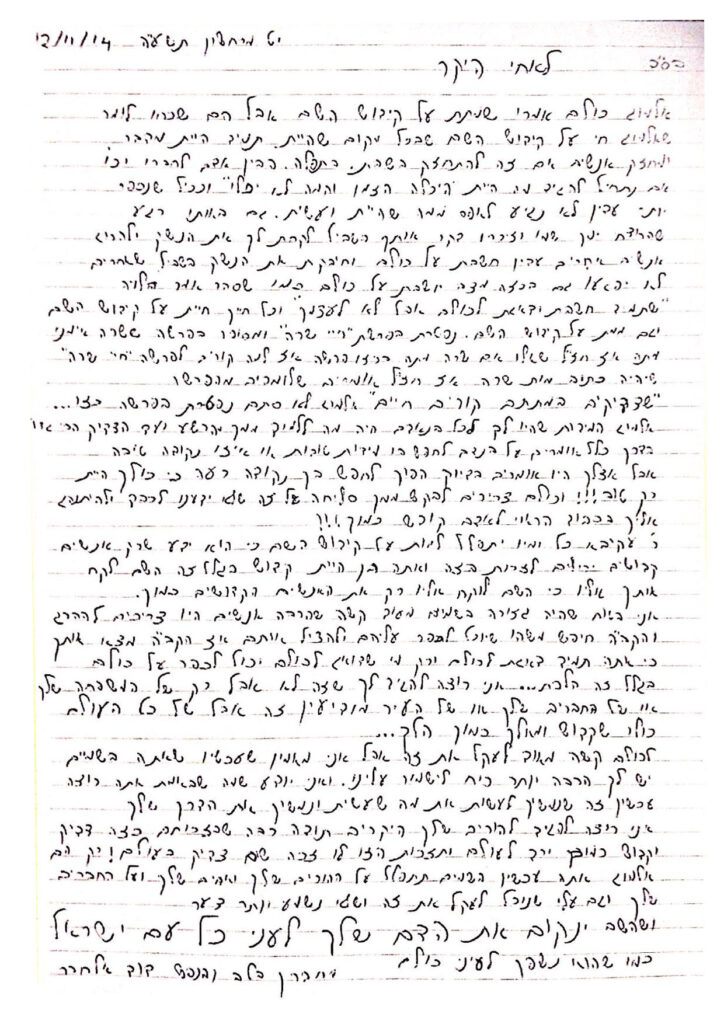 יט מרחשון תשע"ה 12/11/14
בס"ד
לאחי היקר
אלמוג כולם אמרו שמתת על קידוש השם אבל הם שכחו לומר
שאלמוג חי על קידוש השם שבכל מקום שהיית. תמיד היית מדבר
ומחזק אנשים אם זה להתחזק בשבת. בתפלה. הבין אדם לחברו וכו'
אם נתחיל להגיד מה היית "היכלה הזמן והמה לא יכלו" וככל שנספר
יותר עדין לא נגיע לאפס ממה שהיית ועשית. גם באותו רגע
שהרוצח ימח שמו וזיכרו דקר אותך בשביל לקחת לך את הנשק ולהרוג
אנשים אחרים עדין חשבת על כולם וחיבקת את הנשק בשביל שאחרים
לא יפגעו גם בכזה מצב חשבת על כולם כמו שסהר אמר בלויה
"שתמיד חשבת ודאגת לכולם אבל לא לעצמך" וכל חייך חיית על קידוש השם
וגם מתת על קידוש השם. נפטרת בפרשת "חיי שרה" ומסופר בפרשה ששרה אימנו
מתה אז חז"ל שאלו אם שרה מתה בכזו פרשה אז למה קורים לפרשה "חיי שרה"
שיהיה כתוב מות שרה אז חז"ל אומרים שלומדים מהפרשה
"שצדיקים במתתם קורים חיים" אלמוג לא סתם נפטרת בפרשה כזו...
אלמוג המידות שהיו לך לכל בנאדם היה מה ללמוד ממך מהרשע ועד הצדיק הכי גדול
בדרך כלל אומרים על הבנאדם לחפש בו מידות טובות או איזו נקודה טובה
אבל אצלך היו אומרים בדיוק הפוך לחפש בך נקודה רעה כי כולך היית
רק טוב!!! וכולם צריכים לבקש ממך סליחה על זה שלא ידענו לכבד ולהתנהג
אליך בכבוד הראוי לאדם קדוש כמוך!!!
ר' עקיבא כל ימיו יתפלל למות על קידוש השם כי הוא ידע שרק אנשים
קדושים יכולים לזכות בזה ואתה כן היית קדוש בגלל זה השם לקח
אותך אליו כי השם לוקח אליו רק את האנשים הקדושים כמוך.
אני בטוח שהיה גזירה בשמים מאוד קשה שהרבה אנשים היו צריכים להיהרג
והקב"ה חיפש משהו שיוכל לכפר עליהם ולהציל אותם אז הקב"ה מצא אותך
כי אתה תמיד דאגת לכולם ורק מי שדואג לכולם יכול לכפר על כולם
בגלל זה הלכת... אני רוצה להגיד לך שזה לא אבל רק של המשפחה שלך
או של החברים שלך או של העיר מודיעין זה אבל של כל העולם
כולו שקדוש ומלאך כמוך הלך...
לכולם קשה מאוד לעקל את זה אבל אני מאמין שעכשיו שאתה בשמיים
יש לך הרבה יותר כוח לישמור עלינו. ואני יודע שמה שבאמת אתה רוצה
עכשיו זה שנמשיך לעשות את מה שעשית ונמשיך את הדרך שלך
אני רוצה להגיד להורים שלך היקרים תודה רבה שבזכותם כזה צדיק
וקדוש כמוך ירד לעולם ותזכרות הזו לו זכה שום צדיק בעולם! רק הם
אלמוג אתה עכשיו בשמים תתפלל על ההורים שלך ואחים שלך ועל החברים
שלך וגם עלי שנוכל לעקל את זה ושלא נשמע יותר צער
ושהשם ינקום את הדם שלך לעיני כל עם ישראל
כמו שהוא נשפך לעיני כולם
מחברך בלב ובנפש דוד אלחרר